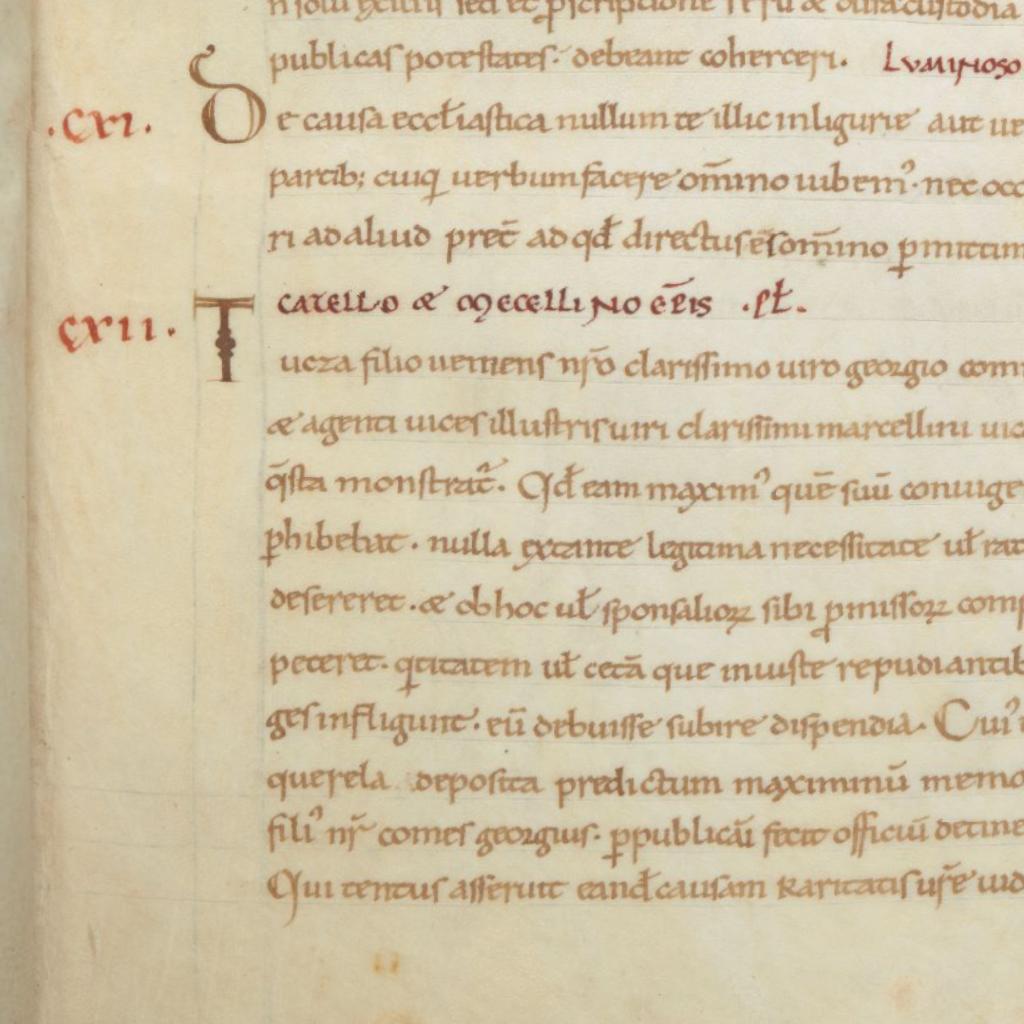 publicas potestates· debeant coherceri. Luminoso
.CXI. De causa eccłiastica nullum te illic inligurie aut ue
partib; cuiq uerbum facere om̄ino iubem᾿· nec occ
ri ad aliud pret̄ ad qđ directus ēs om̄ino ꝑmittim
CXII. CATELLO & MECELLINO EP̄IS .PŁ.
Tucza filio uemens nr̄o clarissimo uiro georgio comi
& agenti uices illustris uiri clarissimi marcellini uic
q̄sta monstrat̄. Qđ eam maxim᾿ quē suū coniuge
ꝓhibebat. nulla extante legitima necessitate uł rat
desereret. & ob hoc uł sponsalioꝝ sibi ꝓmissoꝝ comp
peteret. qtitatem uł cetā que iniuste repudiantib
ges infligunt. eū debuisse subire dispendia. Cui᾿
querela deposita predictum maximinū memo
fili᾿ nr̄ comes georgius· ꝑpublicū fecit officiū detine
Qui tentus asserit eandē causam karitatis ur̄e uid